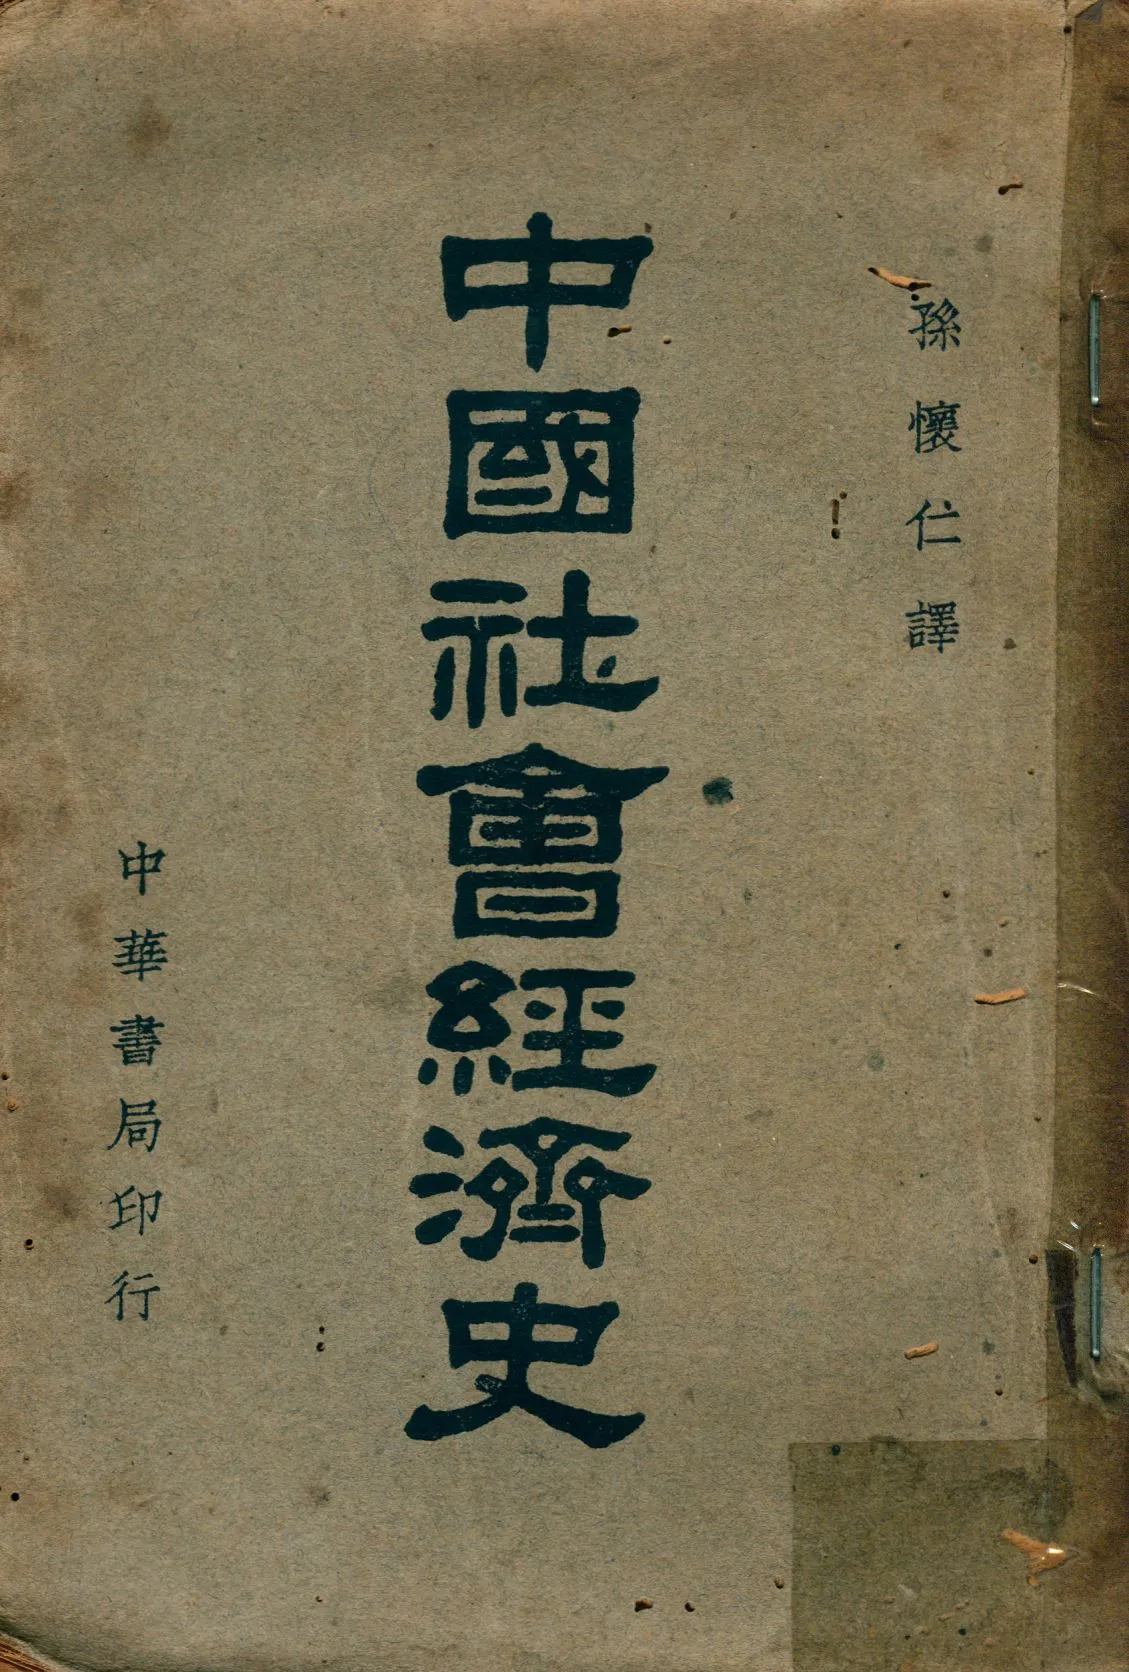 孫懷仁譯
中國社會經濟史
中華書局印行